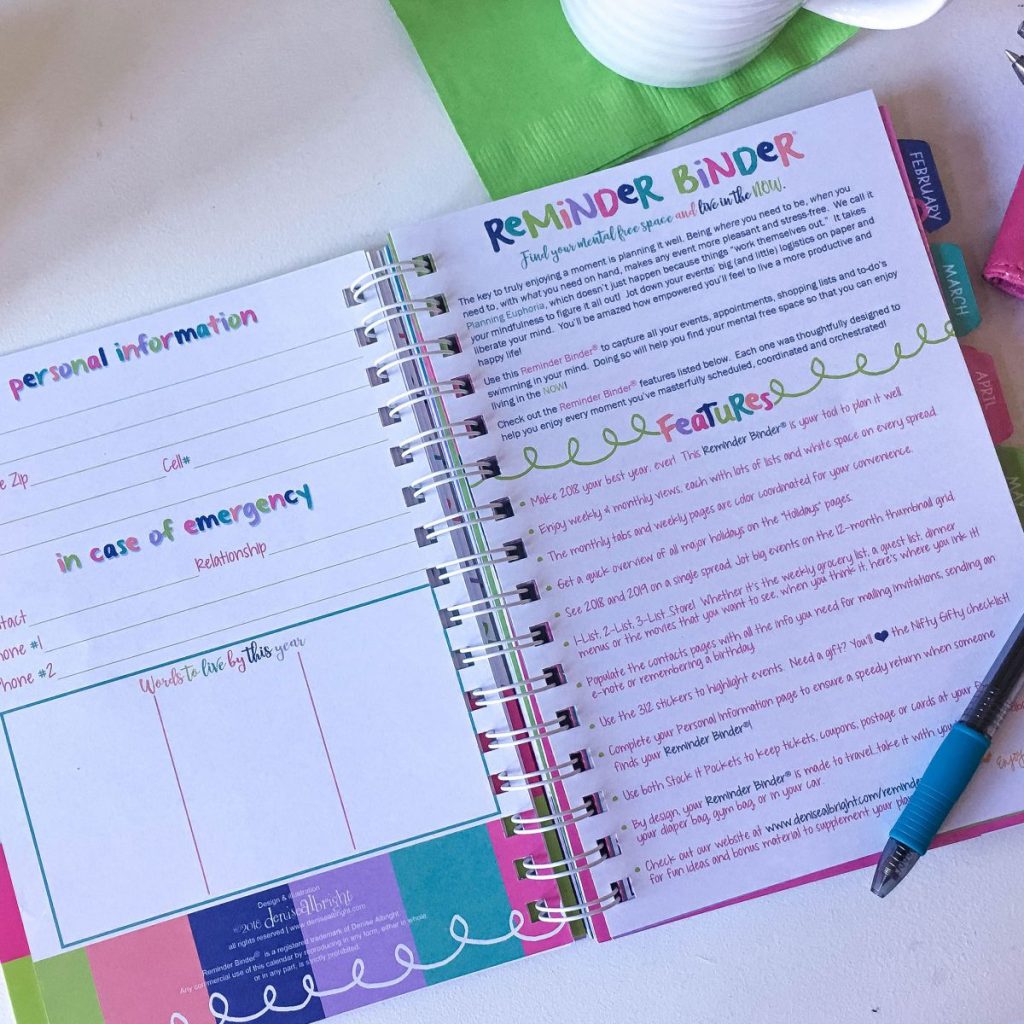 personal information
e Zip
Cell#
in case of emergency
Relationship
ntact
hone #1
Phone #2
Words to live by this year
Design & illustration
©2018 denisealbright
all rights reserved | www.denisealbright.com
Reminder Binder® is a registered trademark of Denise Albright
Any commercial use of this calendar by reproducing in any form, either in whole
or in any part, is strictly prohibited.
REMINDER BINDER®
Find your mental free space and live in the NOW.
The key to truly enjoying a moment is planning it well. Being where you need to be, when you
need to, with what you need on hand, makes any event more pleasant and stress-free. We call it
Planning Euphoria, which doesn't just happen because things "work themselves out." It takes
your mindfulness to figure it all out! Jot down your events' big (and little) logistics on paper and
liberate your mind. You'll be amazed how empowered you'll feel to live a more productive and
happy life!
Use this Reminder Binder® to capture all your events, appointments, shopping lists and to-do's
swimming in your mind. Doing so will help you find your mental free space so that you can enjoy
living in the NOW!
Check out the Reminder Binder® features listed below. Each one was thoughtfully designed to
help you enjoy every moment you've masterfully scheduled, coordinated and orchestrated!
FEATURES
• Make 2018 your best year, ever! This Reminder Binder® is your tool to plan it well.
• Enjoy weekly & monthly views, each with lots of lists and white space on every spread.
• The monthly tabs and weekly pages are color coordinated for your convenience.
• Get a quick overview of all major holidays on the "Holidays" pages.
• See 2018 and 2019 on a single spread. Jot big events on the 12-month thumbnail grid.
• 1-List, 2-List, 3-List...Store! Whether it's the weekly grocery list, a guest list, dinner
menus or the movies that you want to see, when you think it, here's where you ink it!
• Populate the contacts pages with all the info you need for mailing invitations, sending an
e-note or remembering a birthday.
• Use the 312 stickers to highlight events. Need a gift? You'll ♥ the Nifty Gifty checklist!
• Complete your Personal Information page to ensure a speedy return when someone
finds your Reminder Binder®!
• Use both Stock it Pockets to keep tickets, coupons, postage or cards at your fi
• By design, your Reminder Binder® is made to travel...take it with you
your diaper bag, gym bag, or in your car.
• Check out our website at www.denisealbright.com/reminde
for fun ideas and bonus material to supplement your pla
Enjoy
FEBRUARY
MARCH
APRIL